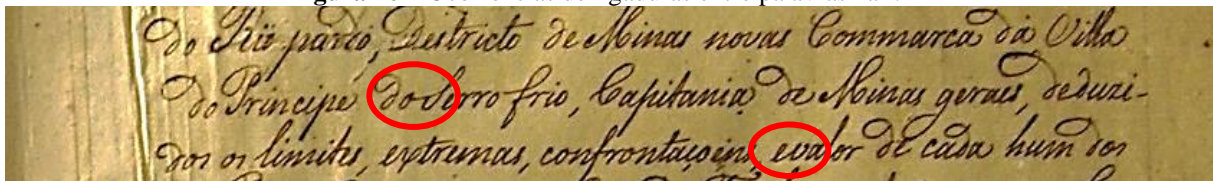 do Rio pardo, Districto de Minas novas Commarca da Villa
do Principe do Serro frio, Capitania de Minas geraes, deduzi-
dos os limites, extremas, confrontaçoins, evalor de cada hum dos